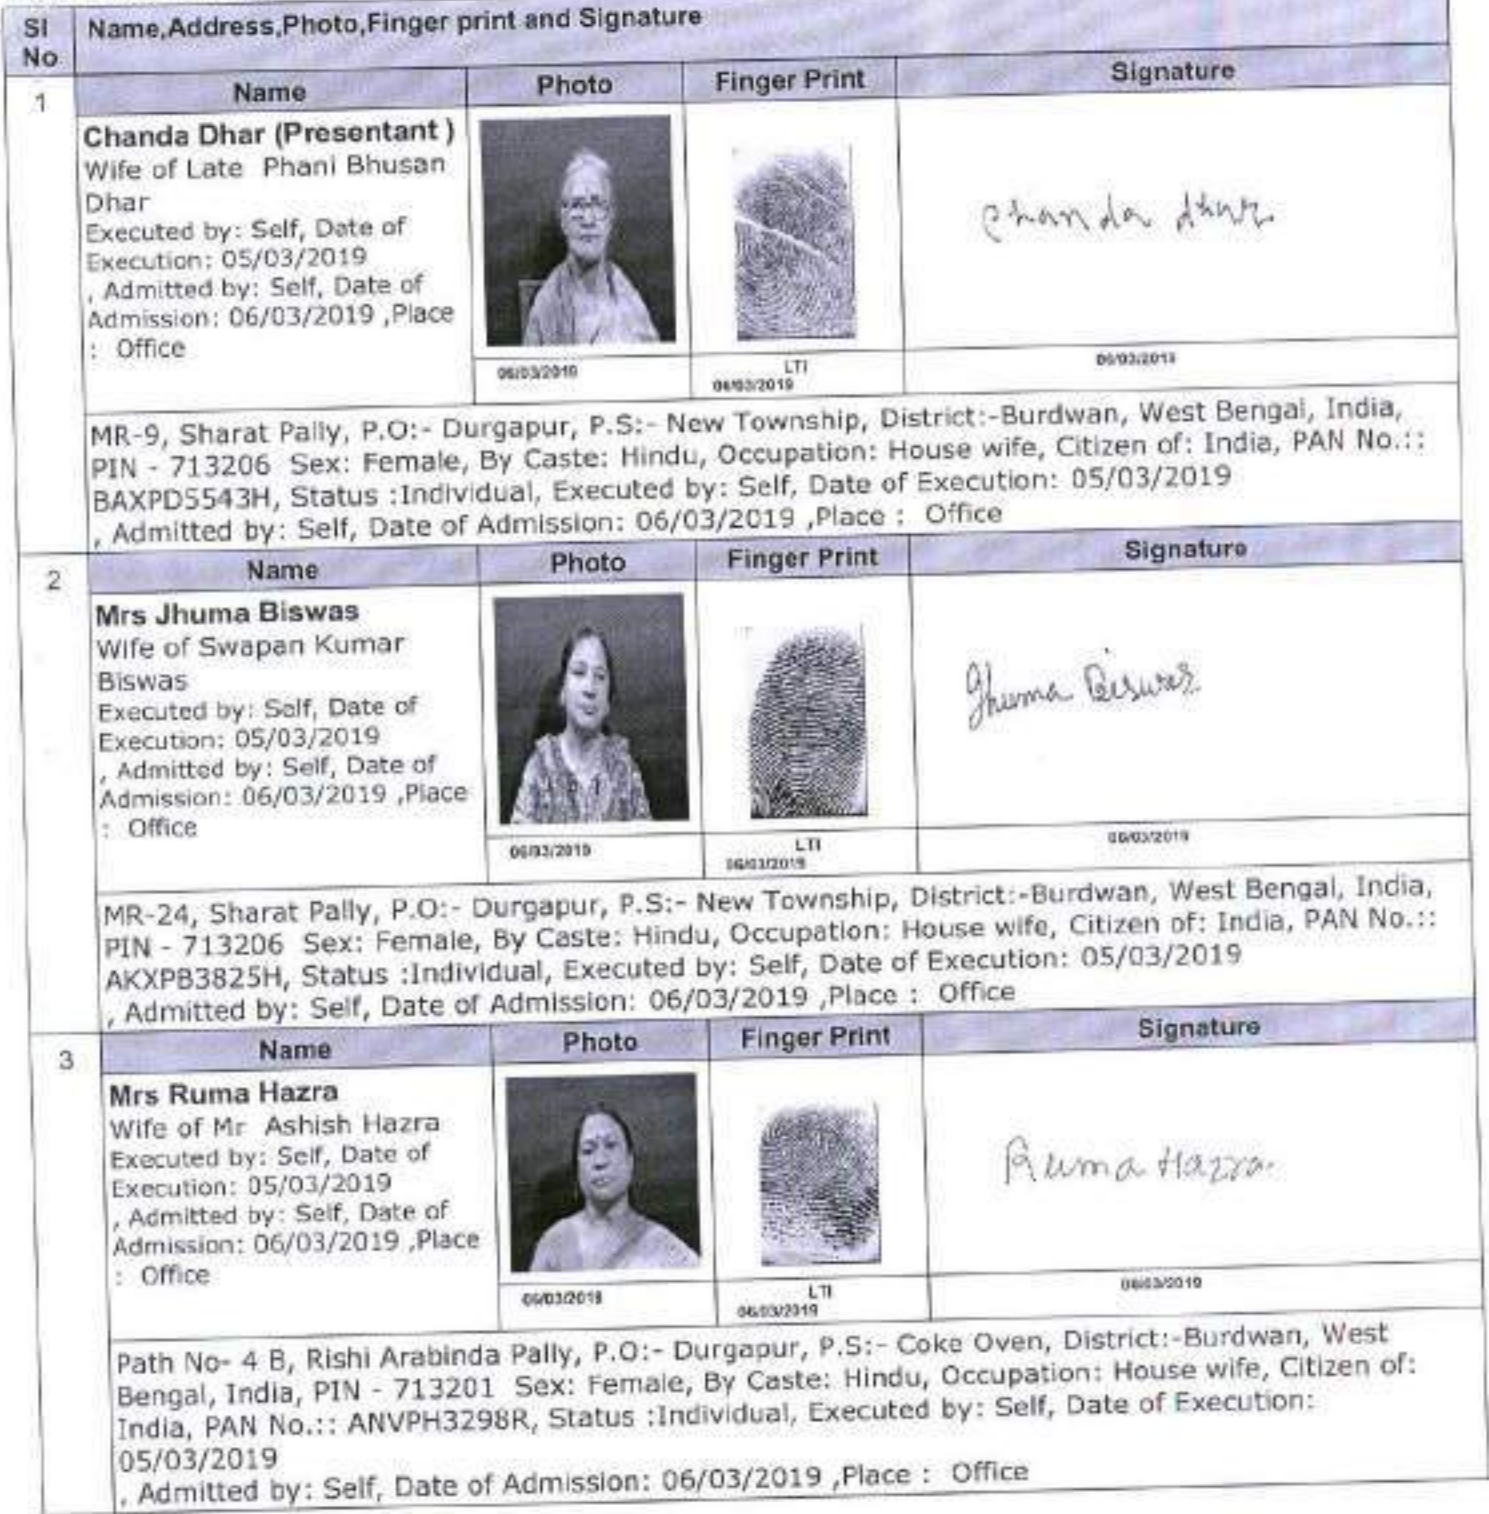 Sl No Name,Address,Photo,Finger print and Signature
1 Name Photo Finger Print Signature
Chanda Dhar (Presentant )
Wife of Late Phani Bhusan
Dhar
Executed by: Self, Date of
Execution: 05/03/2019
, Admitted by: Self, Date of
Admission: 06/03/2019 ,Place
: Office
Chanda dhar
06/03/2019 LTI 06/03/2019 06/03/2019
MR-9, Sharat Pally, P.O:- Durgapur, P.S:- New Township, District:-Burdwan, West Bengal, India,
PIN - 713206 Sex: Female, By Caste: Hindu, Occupation: House wife, Citizen of: India, PAN No.::
BAXPD5543H, Status :Individual, Executed by: Self, Date of Execution: 05/03/2019
, Admitted by: Self, Date of Admission: 06/03/2019 ,Place : Office
2 Name Photo Finger Print Signature
Mrs Jhuma Biswas
Wife of Swapan Kumar
Biswas
Executed by: Self, Date of
Execution: 05/03/2019
, Admitted by: Self, Date of
Admission: 06/03/2019 ,Place
: Office
Jhuma Biswas
06/03/2019 LTI 06/03/2019 06/03/2019
MR-24, Sharat Pally, P.O:- Durgapur, P.S:- New Township, District:-Burdwan, West Bengal, India,
PIN - 713206 Sex: Female, By Caste: Hindu, Occupation: House wife, Citizen of: India, PAN No.::
AKXPB3825H, Status :Individual, Executed by: Self, Date of Execution: 05/03/2019
, Admitted by: Self, Date of Admission: 06/03/2019 ,Place : Office
3 Name Photo Finger Print Signature
Mrs Ruma Hazra
Wife of Mr Ashish Hazra
Executed by: Self, Date of
Execution: 05/03/2019
, Admitted by: Self, Date of
Admission: 06/03/2019 ,Place
: Office
Ruma Hazra.
06/03/2019 LTI 06/03/2019 06/03/2019
Path No- 4 B, Rishi Arabinda Pally, P.O:- Durgapur, P.S:- Coke Oven, District:-Burdwan, West
Bengal, India, PIN - 713201 Sex: Female, By Caste: Hindu, Occupation: House wife, Citizen of:
India, PAN No.:: ANVPH3298R, Status :Individual, Executed by: Self, Date of Execution:
05/03/2019
, Admitted by: Self, Date of Admission: 06/03/2019 ,Place : Office